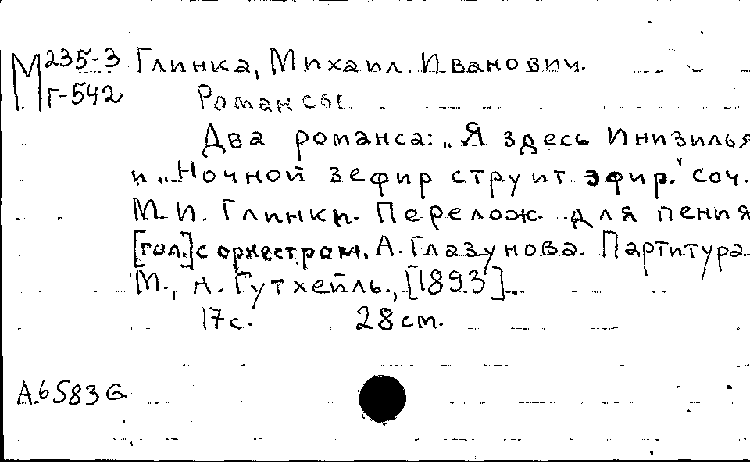 М 235-3 Глинка, Михаил Иванович.
Г-542 Романсы
Два романса: „Я здесь Инизилья
и „Ночной зефир струит эфир." соч.
М.И. Глинки. Перелож. для пения
[гол.] с оркестром, А. Глазунова. Партитура
М., А. Гутхейль., [1893].
17с. 28 см.
А.6583 G